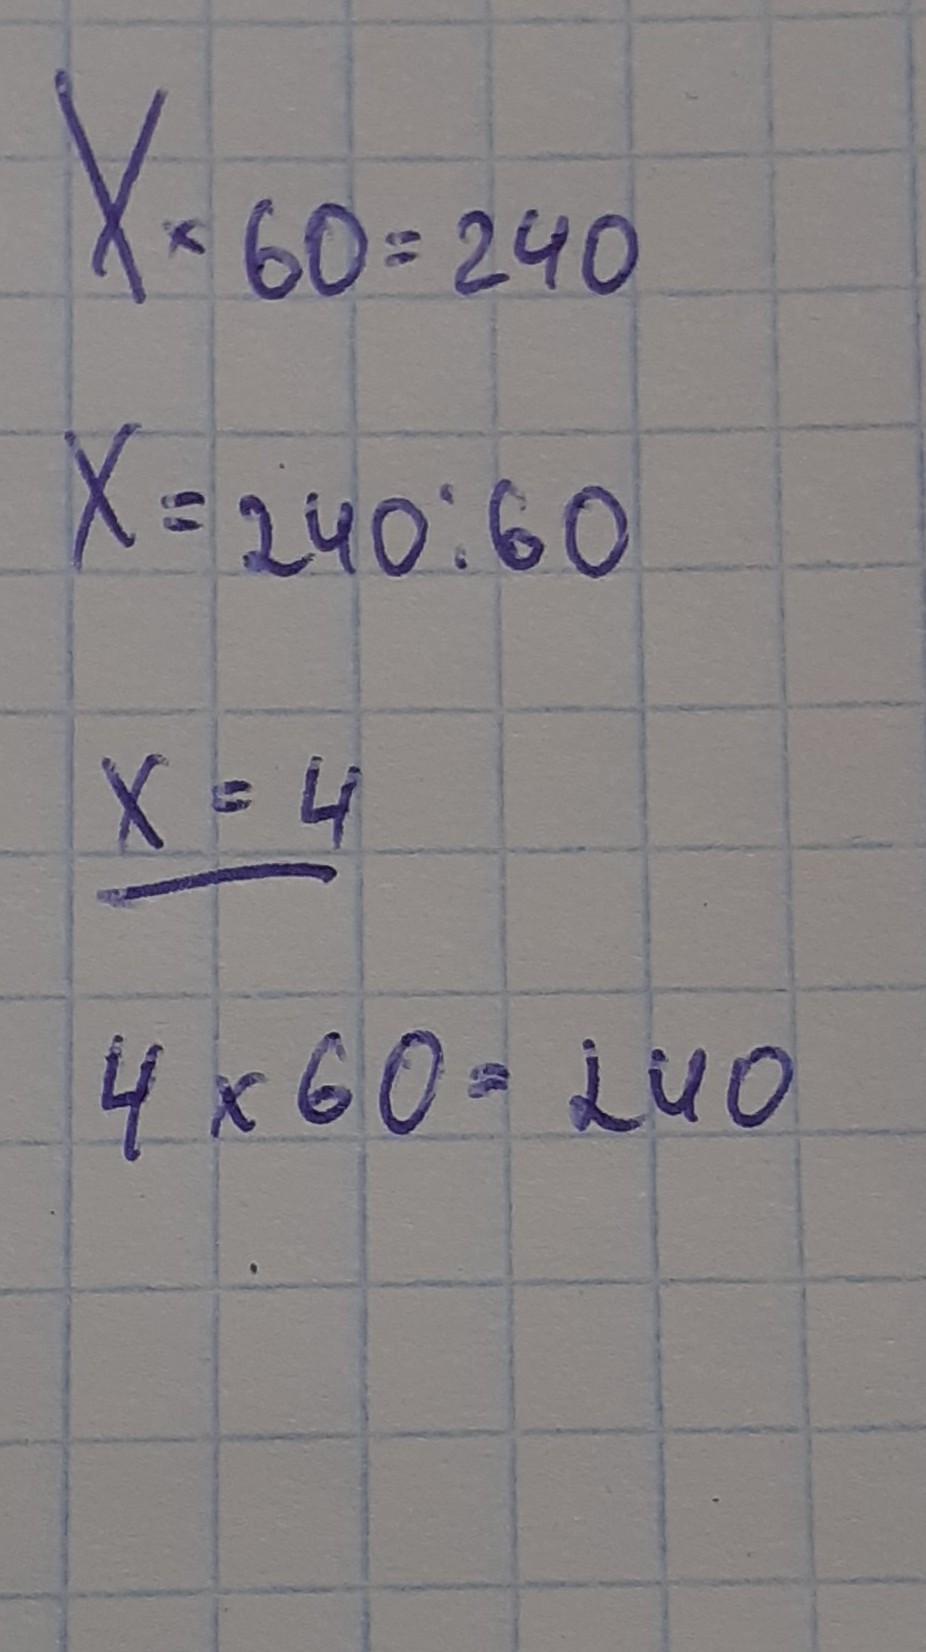 X × 60 = 240
X = 240 : 60
x = 4
4 × 60 = 240